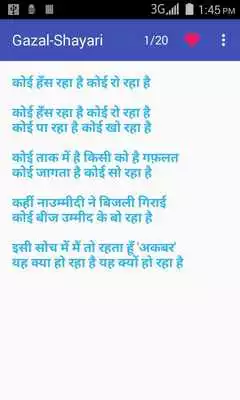 3G 1:45 PM
Gazal-Shayari 1/20
कोई हँस रहा है कोई रो रहा है
कोई हँस रहा है कोई रो रहा है
कोई पा रहा है कोई खो रहा है
कोई ताक में है किसी को है गफ़लत
कोई जागता है कोई सो रहा है
कहीं नाउम्मीदी ने बिजली गिराई
कोई बीज उम्मीद के बो रहा है
इसी सोच में मैं तो रहता हूँ 'अकबर'
यह क्या हो रहा है यह क्यों हो रहा है